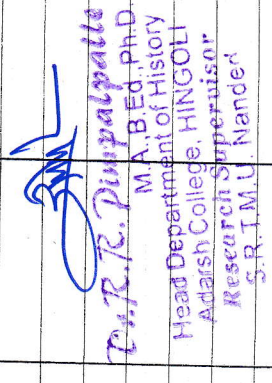 Dr. R. R. Pimpalpalle
M. A. B.Ed. Ph.D
Head Department of History
Adarsh College, HINGOLI
Research Supervisor
S. R. T. M. U. Nanded